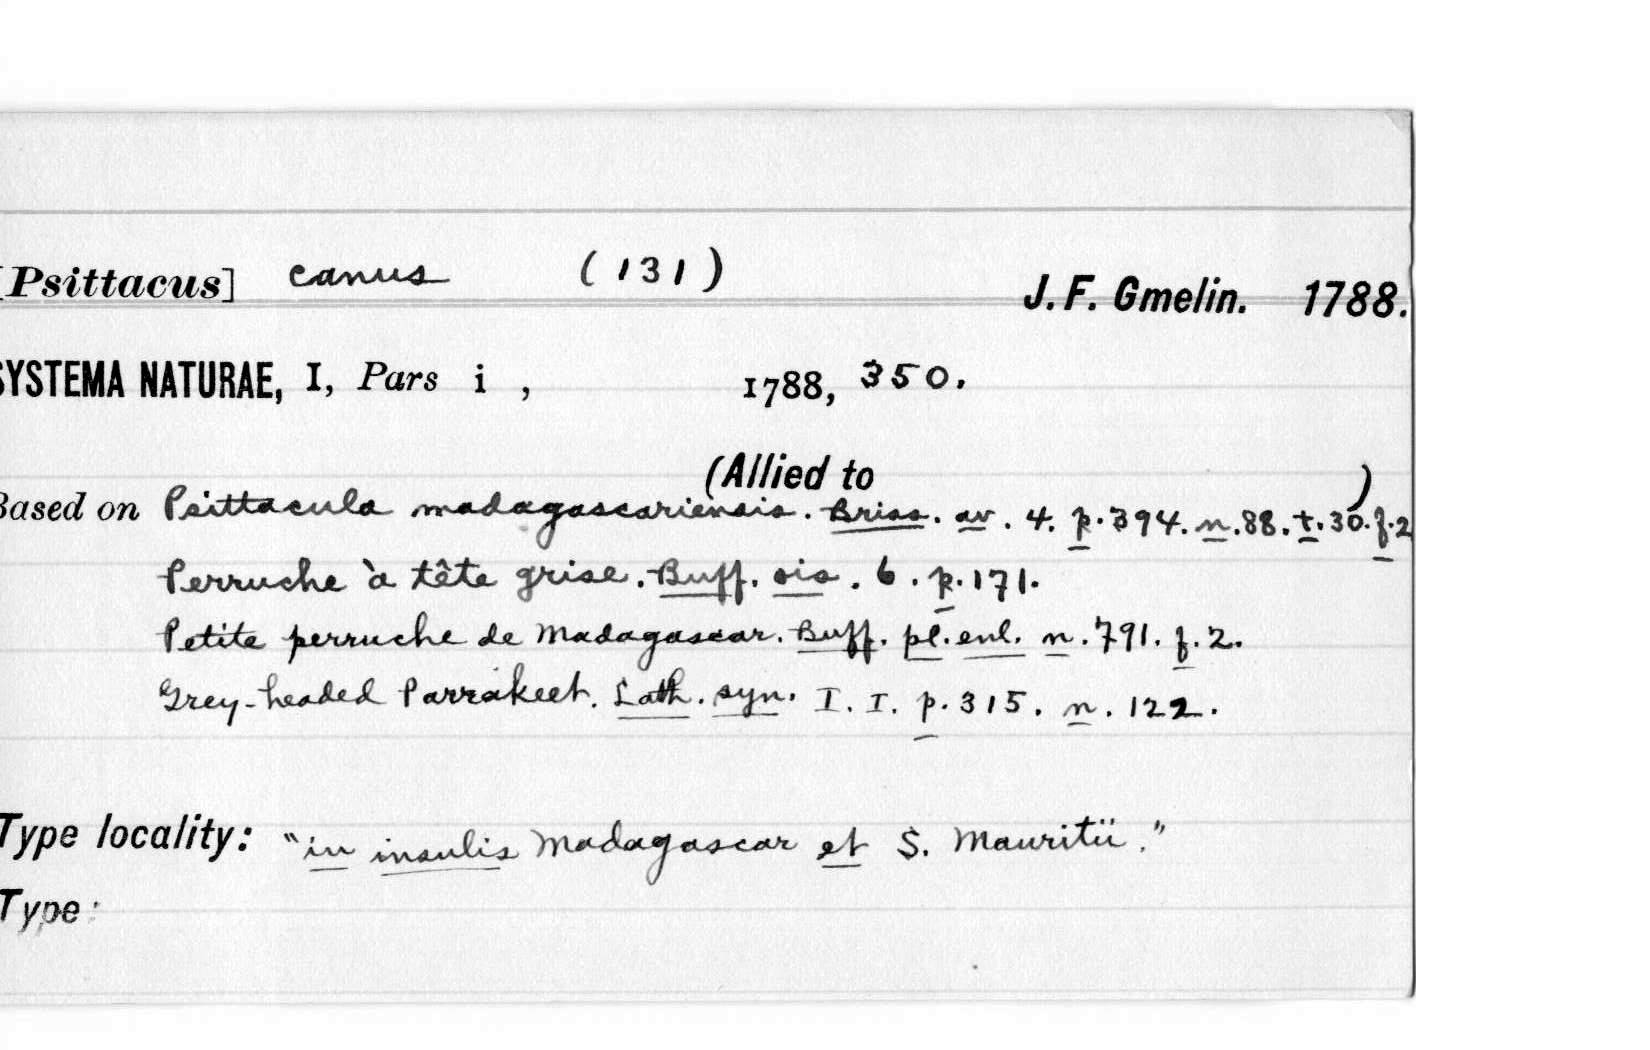 [Psittacus] canus (131) J. F. Gmelin. 1788.
SYSTEMA NATURAE, I, Pars i , 1788, 350.
(Allied to )
Based on Psittacula madagascariensis. Briss. av. 4. p. 394. n. 88. t. 30. f. 2
Perruche à tête grise. Buff. ois. 6. p. 171.
Petite perruche de Madagascar. Buff. pl. enl. n. 791. f. 2.
Grey-headed Parrakeet. Lath. syn. I. I. p. 315. n. 122.
Type locality: "in insulis Madagascar et S. Mauritii."
Type: